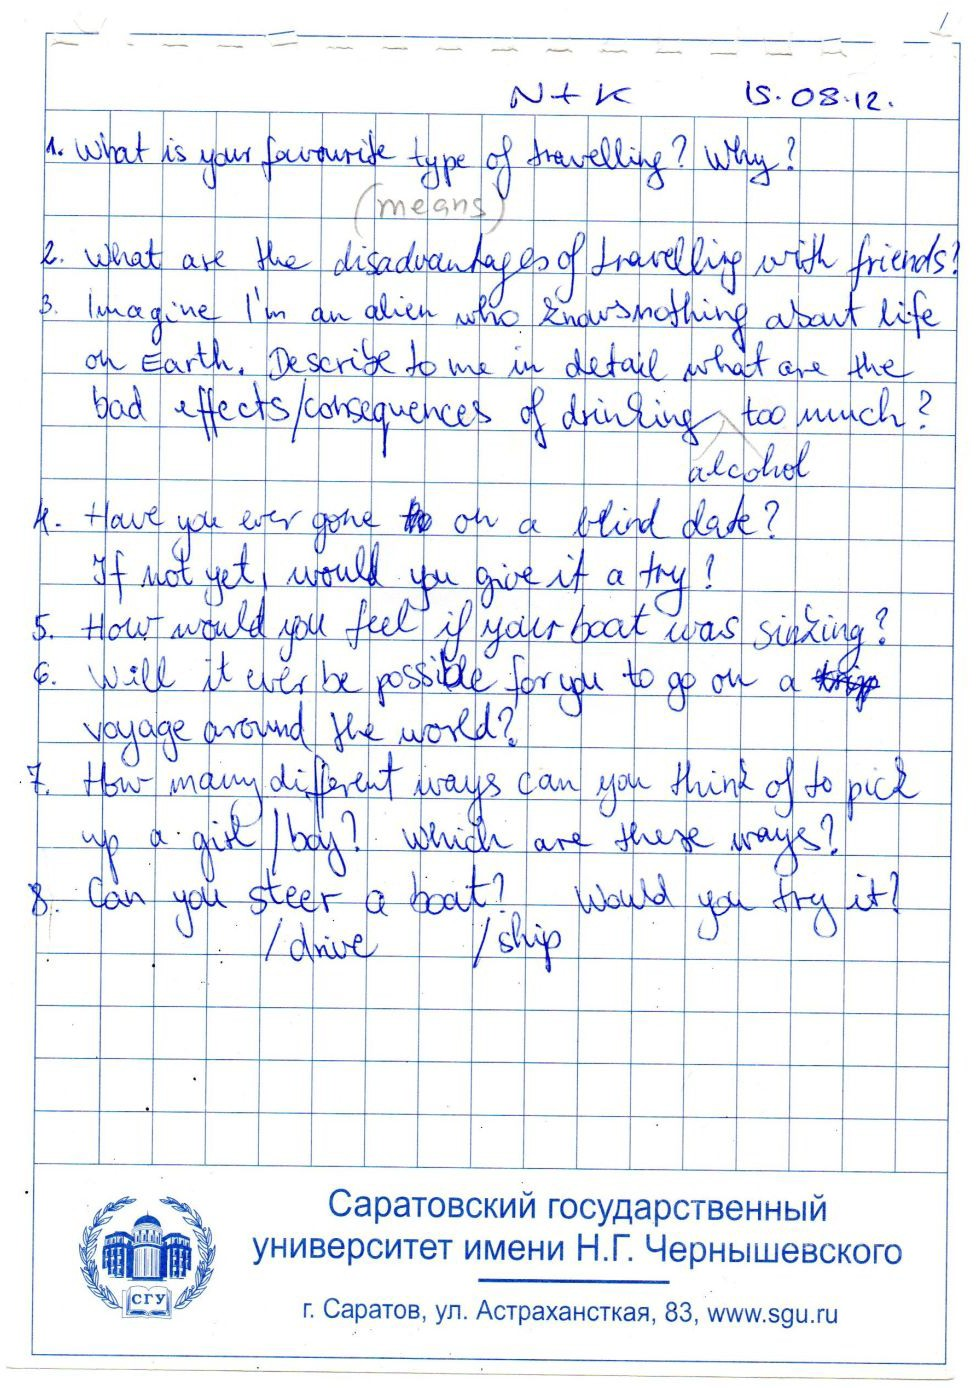 N + K 15.08.12.
1. What is your favourite type of travelling? Why?
(means)
2. What are the disadvantages of travelling with friends?
3. Imagine I'm an alien who knows nothing about life
on Earth. Describe to me in detail what are the
bad effects/consequences of drinking too much?
alcohol
4. Have you ever gone on a blind date?
If not yet, would you give it a try?
5. How would you feel if your boat was sinking?
6. Will it ever be possible for you to go on a trip
voyage around the world?
7. How many different ways can you think of to pick
up a girl /boy? Which are these ways?
8. Can you steer a boat? Would you try it?
/drive /ship
СГУ
Саратовский государственный
университет имени Н.Г. Чернышевского
г. Саратов, ул. Астрахансткая, 83, www.sgu.ru